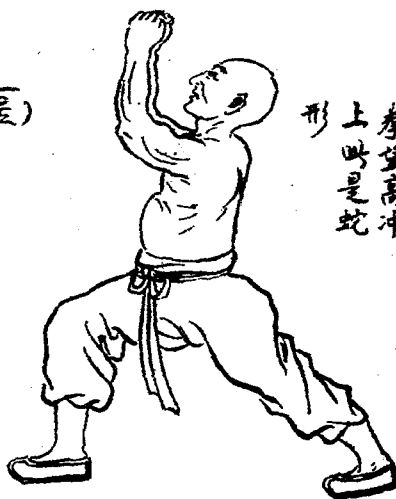 拳望高冲
上此是蛇
形